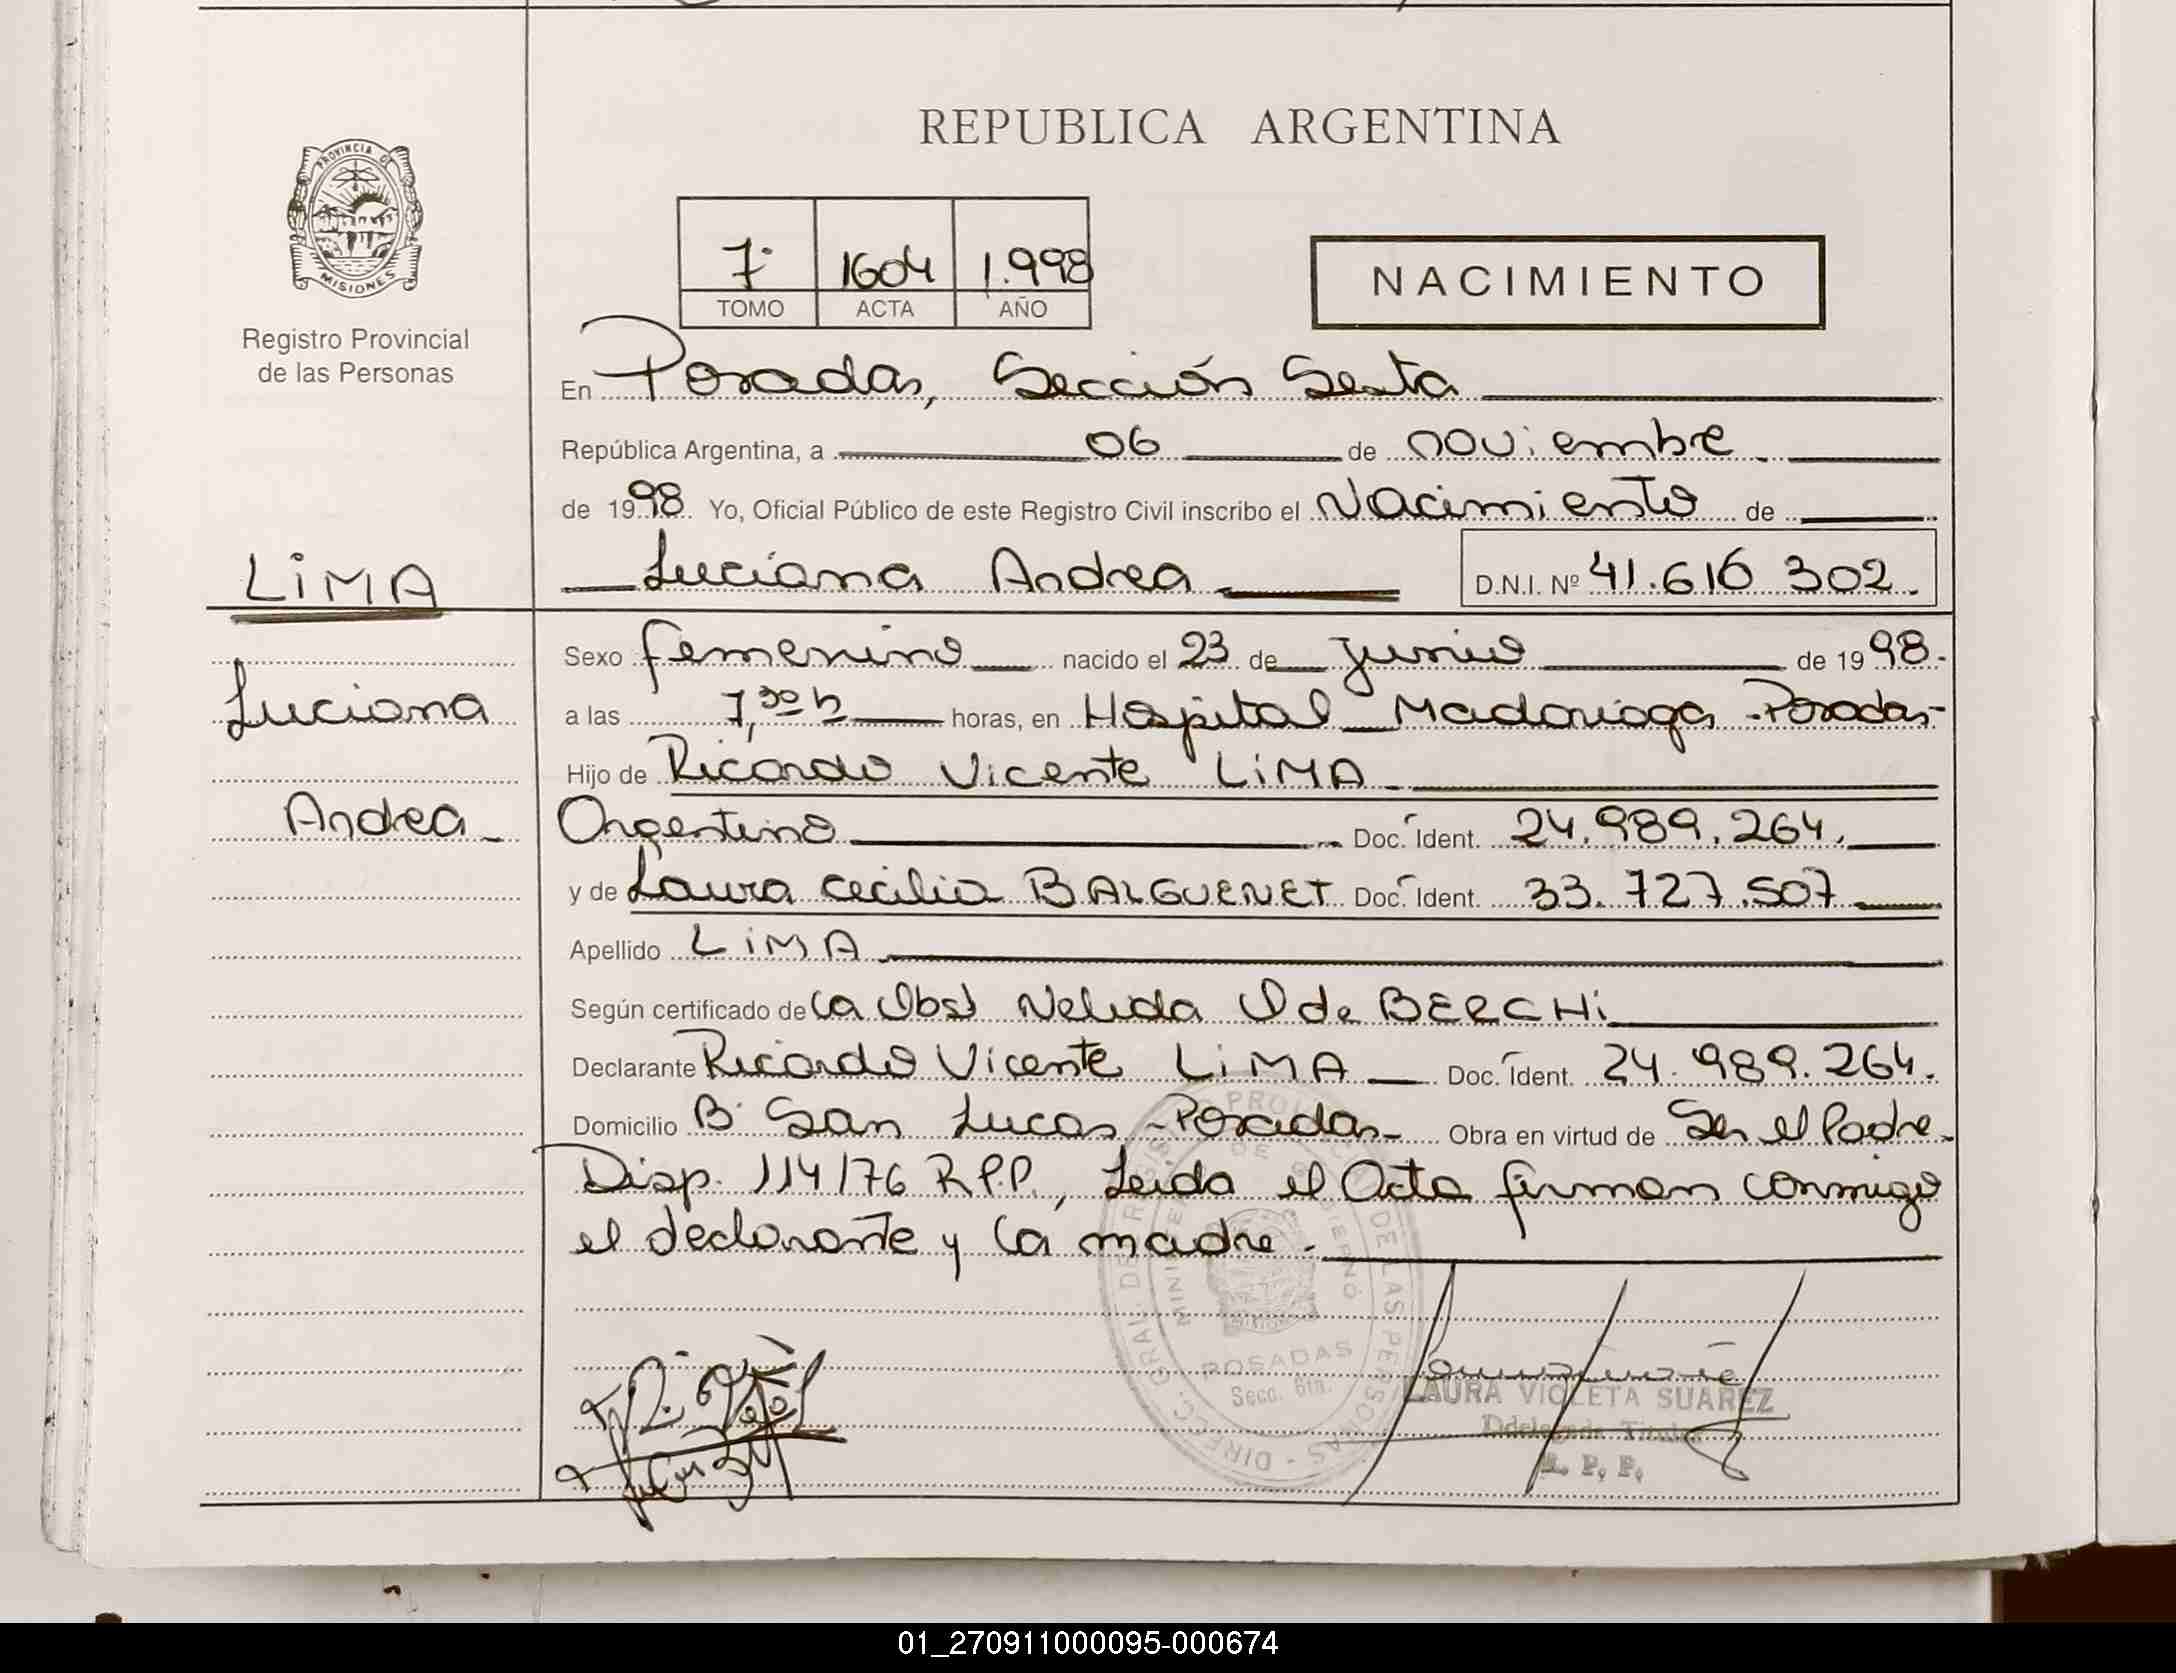 REPUBLICA ARGENTINA
PROVINCIA DE
MISIONES
Registro Provincial
de las Personas
7º 1604 1.998
TOMO ACTA AÑO
NACIMIENTO
En Posadas, Sección Sexta
República Argentina, a 06 de noviembre
de 1998 Yo, Oficial Público de este Registro Civil inscribo el Nacimiento de
LiMA
Luciana Andrea D.N.I. Nº 41.616 302.
Sexo femenino nacido el 23 de junio de 1998.
Luciana
a las 7,30 h horas, en Hospital Madariaga - Posadas -
Hijo de Ricardo Vicente LiMA
Andrea
Argentino Doc. Ident. 24.989.264.
y de Laura Cecilia BALGUENET Doc. Ident. 33.727.507
Apellido LiMA
Según certificado de la Obst Nelida O de BERCHi
Declarante Ricardo Vicente LiMA Doc. Ident. 24.989.264.
Domicilio Bº San Lucas - Posadas - Obra en virtud de Ser el Padre -
Disp. 114/76 R.P.P., Leida el Acta firman conmigo
el declarante y la madre.
DIRECC. GRAL. DE REGISTRO PROVINCIAL DE LAS PERSONAS
MINISTERIO DE GOBIERNO
POSADAS
Secc. 6ta.
LAURA VIOLETA SUAREZ
Ddelegada Titular
R. P. P.
01_270911000095-000674